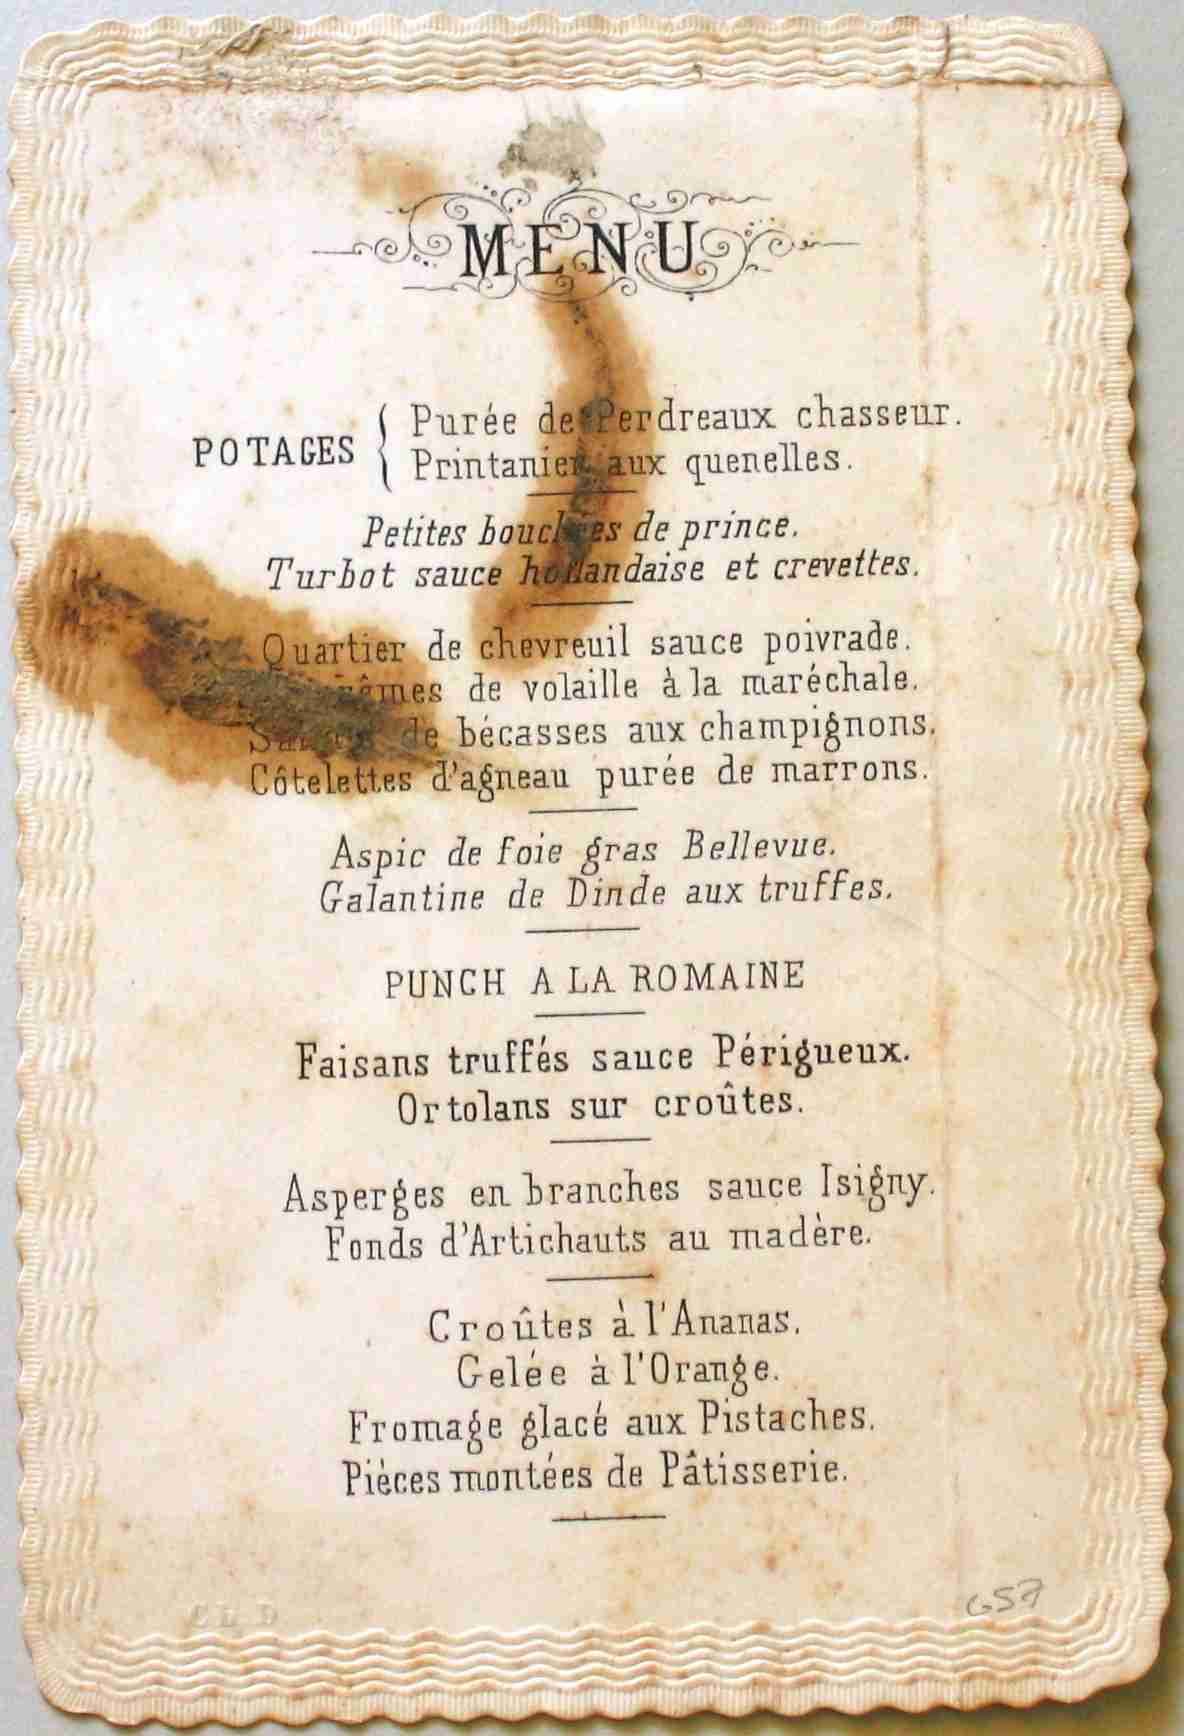 MENU
POTAGES
Purée de Perdreaux chasseur.
Printanier aux quenelles.
Petites bouchées de prince.
Turbot sauce hollandaise et crevettes.
Quartier de chevreuil sauce poivrade.
de volaille à la maréchale.
de bécasses aux champignons.
Côtelettes d'agneau purée de marrons.
Aspic de foie gras Bellevue.
Galantine de Dinde aux truffes.
PUNCH A LA ROMAINE
Faisans truffés sauce Périgueux.
Ortolans sur croûtes.
Asperges en branches sauce Isigny.
Fonds d'Artichauts au madère.
Croûtes à l'Ananas.
Gelée à l'Orange.
Fromage glacé aux Pistaches.
Pièces montées de Pâtisserie.